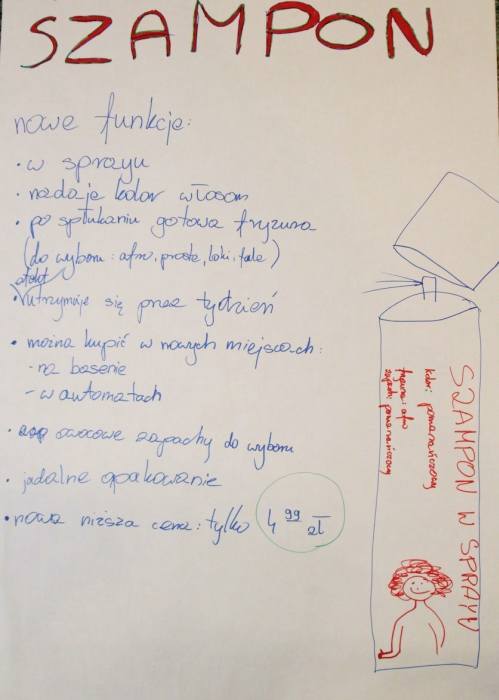 SZAMPON
nowe funkcje:
• w sprayu
• nadaje kolor włosom
• po spłukaniu gotowa fryzura
(do wyboru: afro, proste, loki, fale)
efekt
• utrzymuje się przez tydzień
• można kupić w nowych miejscach:
- na basenie
- w automatach
• owocowe zapachy do wyboru
• jadalne opakowanie
• nowa niższa cena: tylko 4 99 zł
SZAMPON W SPRAYU
kolor: pomarańczowy
fryzura: afro
zapach: pomarańczowy